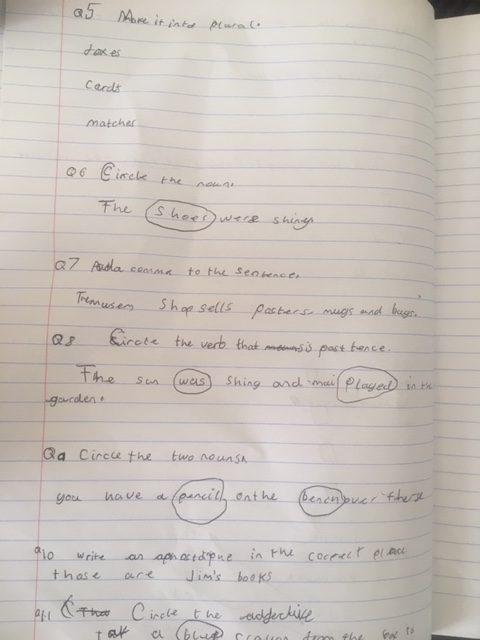 Q5 Make it into plural.
foxes
cards
matches
Q6 Circle the noun.
The shoes were shiny
Q7 Add a comma to the sentence.
shop sells posters mugs and bags.
Q8 Circle the verb that is past tence.
The sun was shing and played in the
garden.
Q9 Circle the two nouns.
you have a pencil on the bench over there
Q10 write an in the correct place
those are Jim's books
Q11 Circle the adjective
a blue crayon from the box to